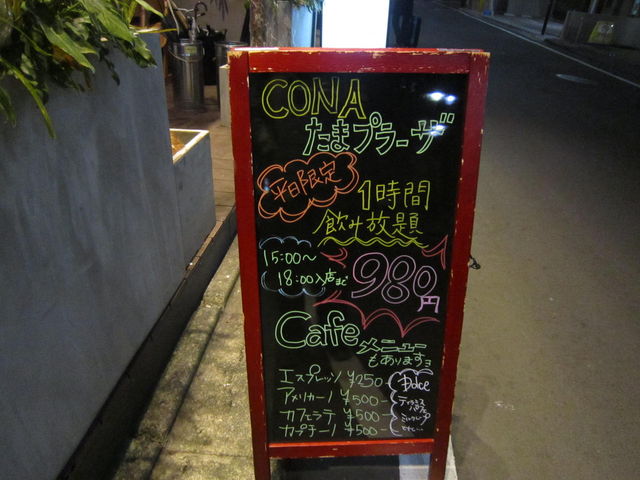 CONA
たまプラーザ
平日限定
1時間
飲み放題
15:00〜
18:00入店まで
980円
Cafe
メニュー
もありますヨ
エスプレッソ ¥250-
アメリカーノ ¥500-
カフェラテ ¥500-
カプチーノ ¥500-
Dolce
ティラミス